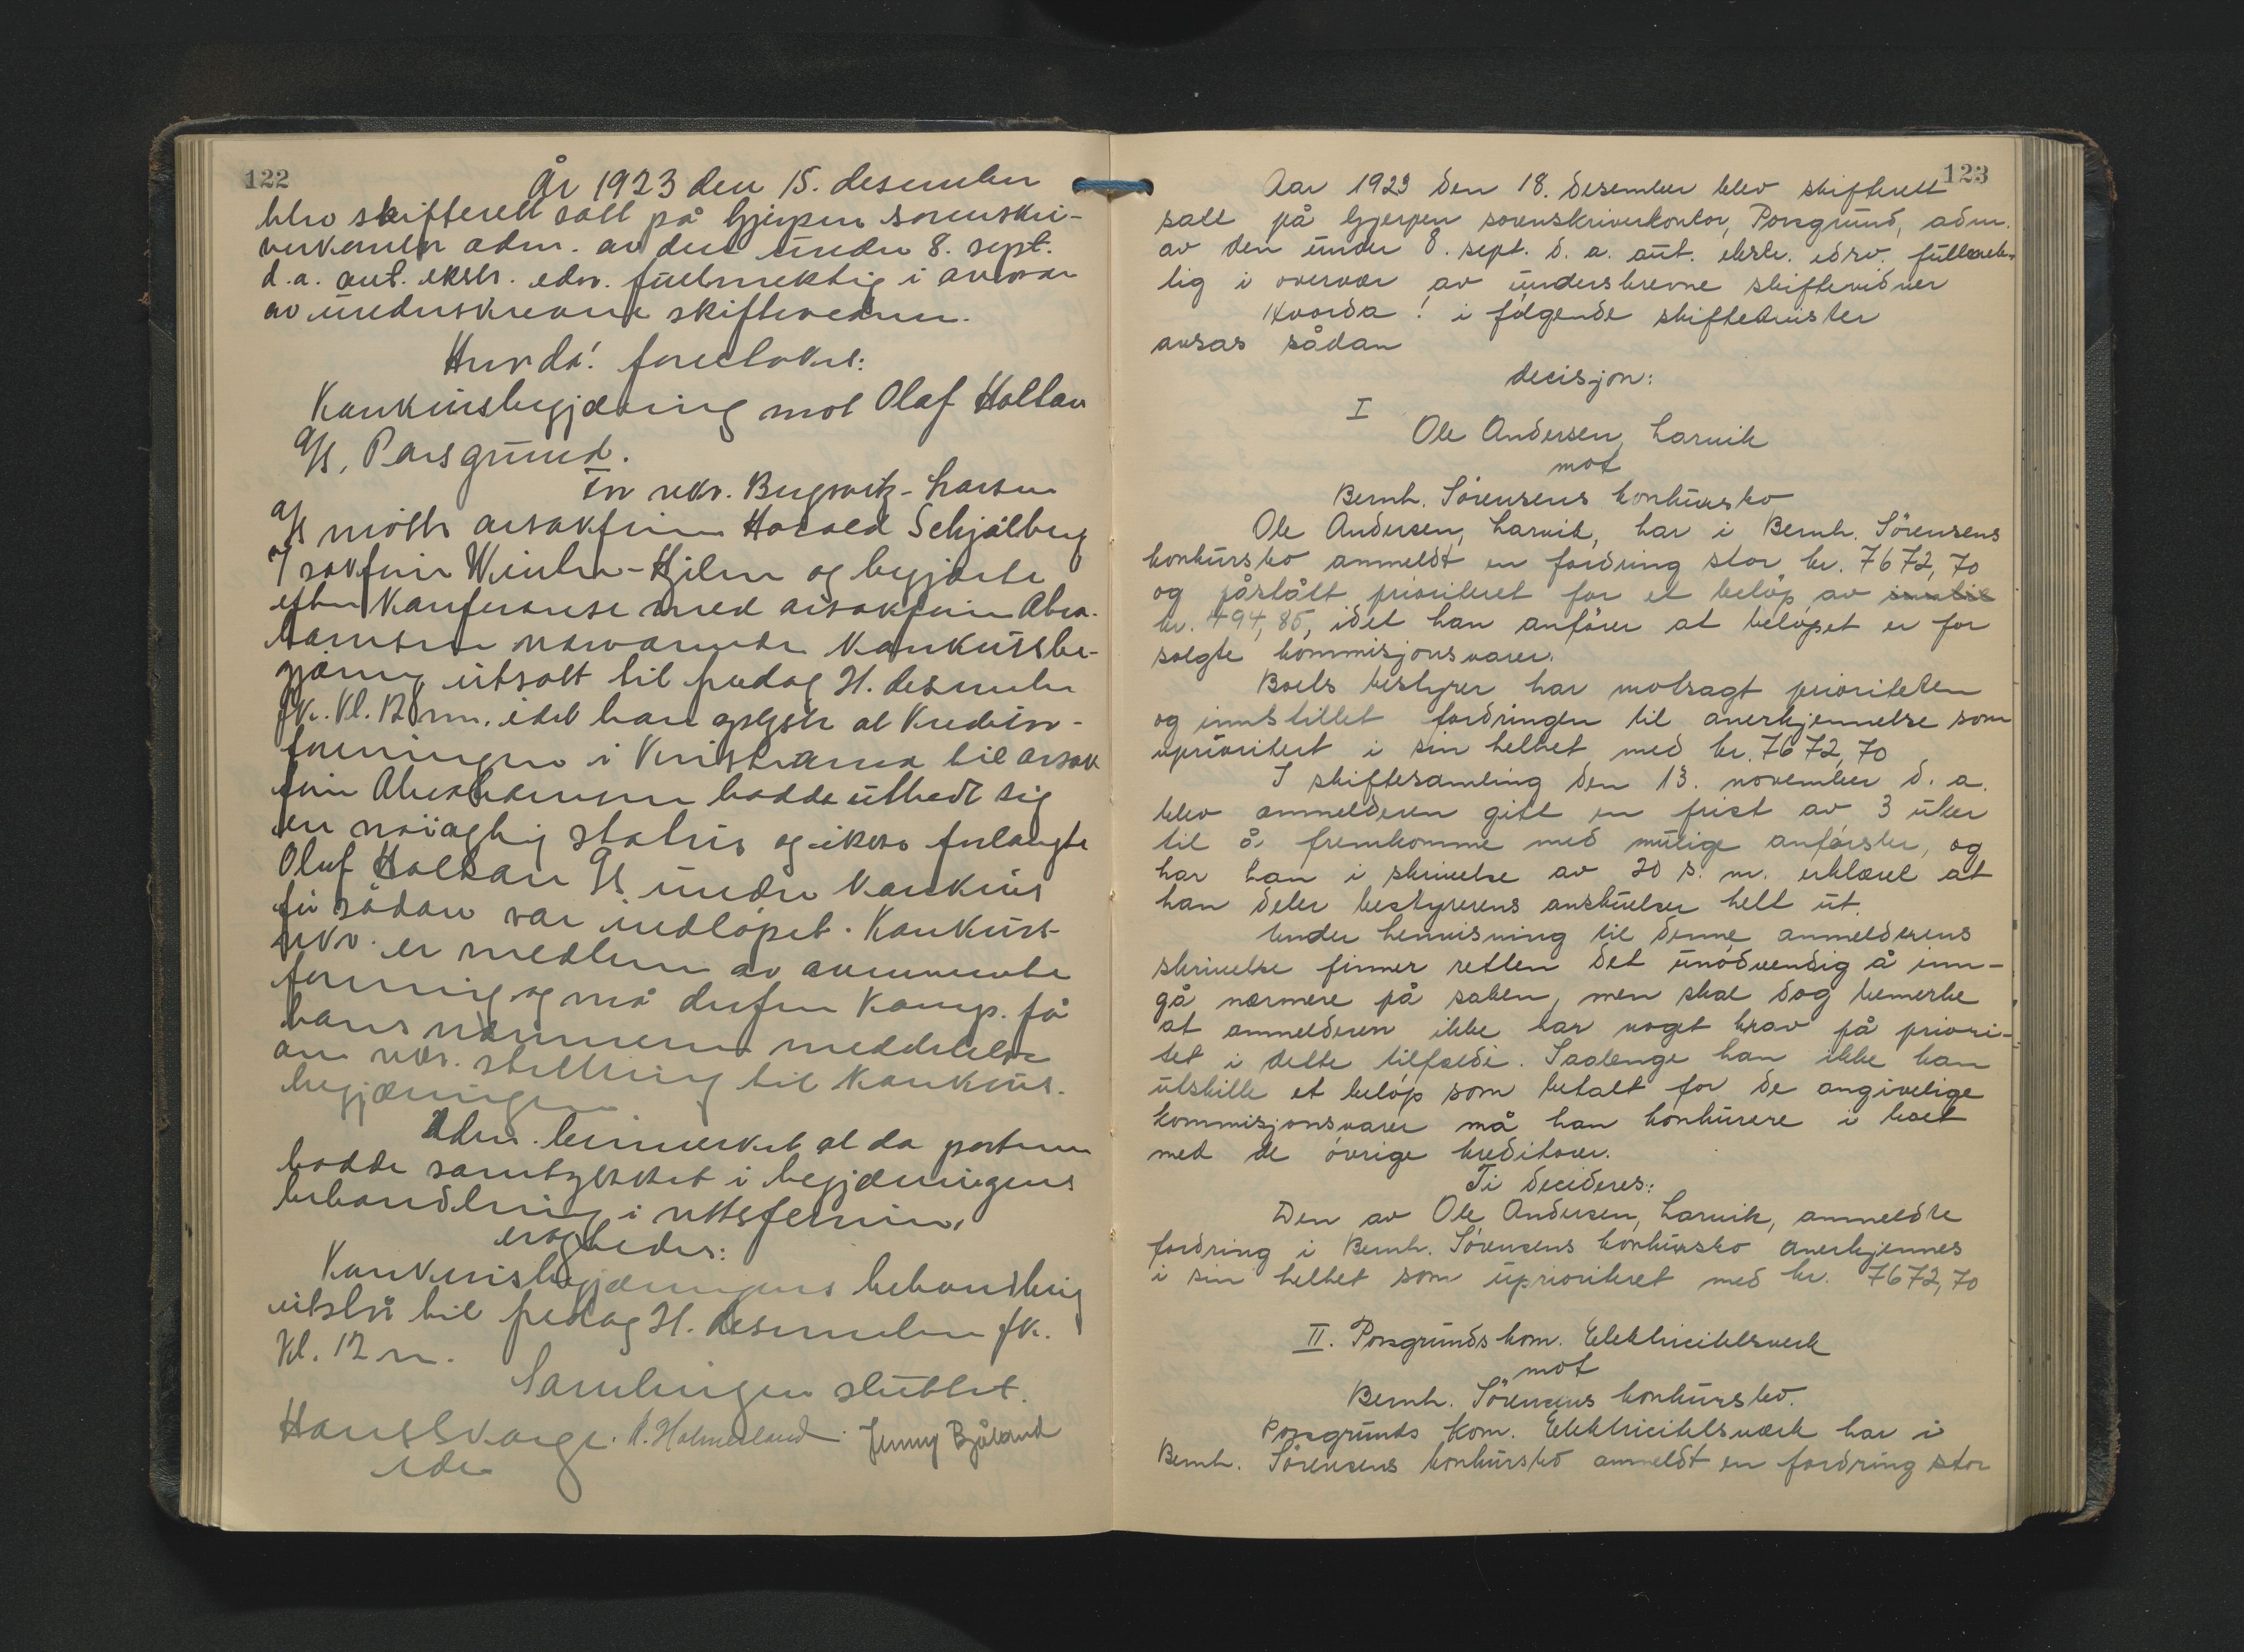 122
År 1923 den 15. desember
blev skifterett satt på Gjerpen sorenskri-
verkontor adm. av den under 8. sept.
d.a. aut. ekstr. edsv. fullmektig i overvær
av underskrevne skiftevidner.
Hvorda! foretokes:
Konkursbegjæring mot Olaf Holtan
A/S, Porsgrund.
For rekv. Bugowitz-Larsen
A/S møtte orsakfører Harald Schjølberg
og sakfører Winther-Hjelm og begjærte
efter konferanse med orsakfører Abra-
hamsen nærværende konkursbe-
gjæring utsatt til fredag 21. desember
fk. kl. 12 mn. idet han oplyste at Kreditor-
foreningen i Kristiania til orsak
fører Abrahamsen hadde utbedt sig
en nøiagtig status og ikke forlangte
Olaf Holtan A/S under konkurs
før sådan var indløpet. Konkurs-
rekv. er medlem av ovennevnte
forening og må derfor komp. få
hans nærmere meddelelse
om rekv. stilling til konkurs-
begjæringen
Adm. bemerket at da partene
hadde samtykket i begjæringens
behandling i rettsferien,
eragtedes:
Konkursbegjæringens behandling
utstår til fredag 21. desember fk.
kl. 12 m.
Samlingen sluttet.
Hans Svarge. K. Holmesland. Jenny Bjåland
edsv
123
Aar 1923 den 18. desember blev skifterett
satt på Gjerpen sorenskriverkontor, Porsgrund, adm.
av den under 8. sept. d. a. aut. ekstr. edsv. fullmek-
tig i overvær av underskrevne skiftevidner
Hvorda! i følgende skiftetvister
avsas sådan
decisjon:
I
Ole Andersen, Larvik
mot
Bernh. Sørensens konkursbo
Ole Andersen, Larvik, har i Bernh. Sørensens
konkursbo anmeldt en fordring stor kr. 7672,70
og påstått prioritet for et beløp av
kr. 494,85, idet han anfører at beløpet er for
solgte kommisjonsvarer.
Boets bestyrer har motsagt prioriteten
og innstillet fordringen til anerkjennelse som
uprioritert i sin helhet med kr. 7672,70
I skiftesamling den 13. november d. a.
blev anmelderen gitt en frist av 3 uker
til å fremkomme med mulige anførsler, og
har han i skrivelse av 20 s. m. erklæret at
han deler bestyrerens anskuelser helt ut.
Under henvisning til denne anmelderens
skrivelse finner retten det unødvendig å inn-
gå nærmere på saken, men skal dog bemerke
at anmelderen ikke har noget krav på priori-
tet i dette tilfælde. Saalenge han ikke kan
utskille et beløp som betalt for de angivelige
kommisjonsvarer må han konkurere i boet
med de øvrige kreditorer.
Ti decideres:
Den av Ole Andersen, Larvik, anmeldte
fordring i Bernh. Sørensens konkursbo anerkjennes
i sin helhet som uprioriteret med kr. 7672,70
II. Porsgrunds kom. Elektricitetsverk
mot
Bernh. Sørensens konkursbo.
Porsgrunds kom. Elektricitetsværk har i
Bernh. Sørensens konkursbo anmeldt en fordring stor